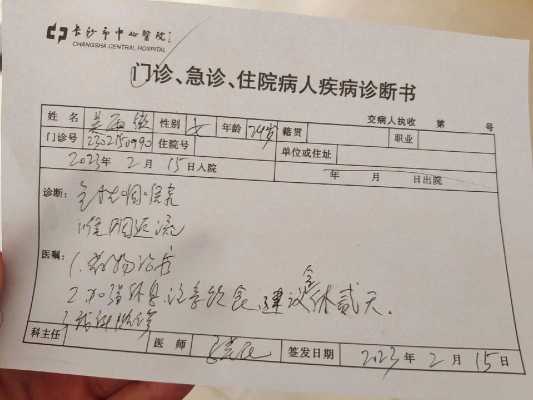 长沙市中心医院
CHANGSHA CENTRAL HOSPITAL
门诊、急诊、住院病人疾病诊断书
交病人执收 第 号
姓名 吴 性别 女 年龄 岁 籍贯 职业
门诊号 2302150990 住院号 单位或住址
2023年2月15日入院 年 月 日出院
诊断: 急性咽喉炎
咽返流
医嘱: 1.药物治疗
2.加强休息,注意饮食,建议全休贰天.
3.我科随诊
科主任 医师 签发日期 2023年2月15日